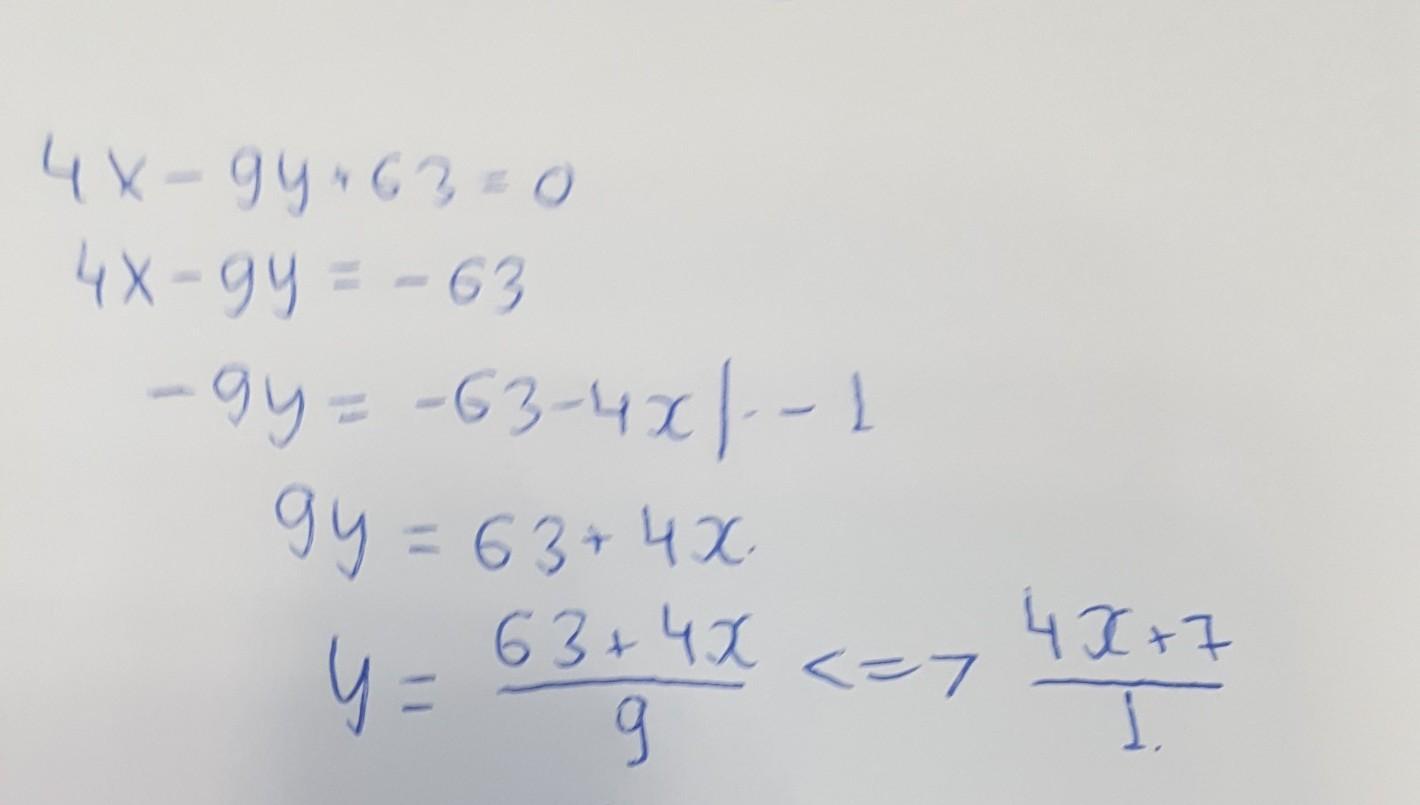 4x - 9y + 63 = 0
4x - 9y = - 63
- 9y = - 63 - 4x | · - 1
9y = 63 + 4x.
y = \frac{63 + 4x}{9} <=> \frac{4x + 7}{1.}